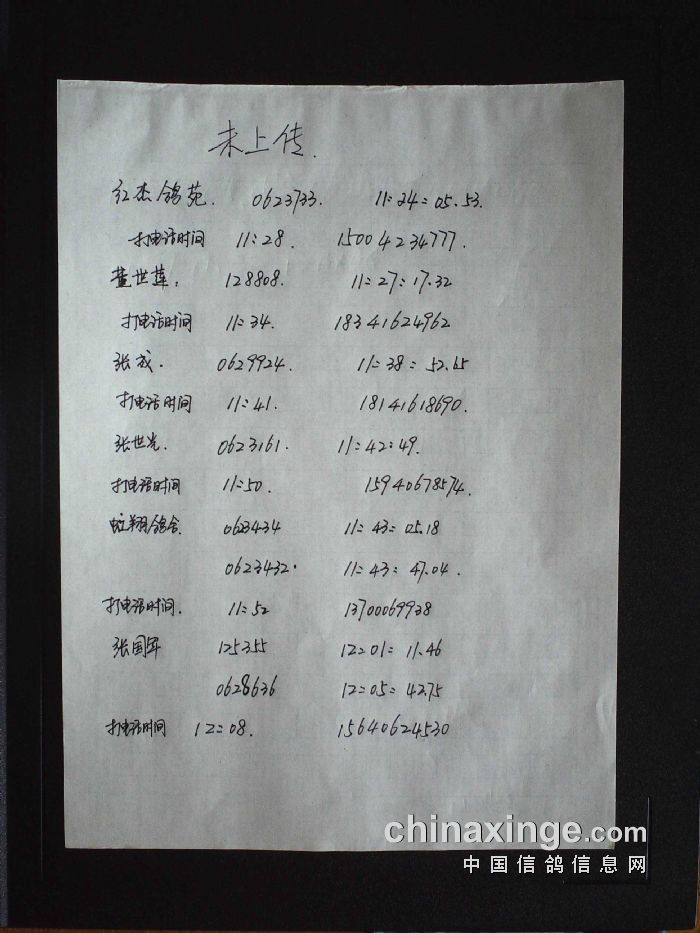 未上传.
红杰鸽苑. 0623733. 11:24:05.53.
打电话时间 11:28. 15004234777.
董世莲. 128808. 11:27:17.32
打电话时间 11:34. 18341624962
张成. 0629924. 11:38:52.65
打电话时间 11:41. 18141618690.
张世光. 0623161. 11:42:49.
打电话时间 11:50. 15940678574.
翔鸽舍. 063434 11:43:05.18
0623432. 11:43:47.04.
打电话时间. 11:52 1370069938
张国军 125355 12:01:11.46
0628636 12:05:42.75
打电话时间 12:08. 15640624530
chinaxinge.com
中国信鸽信息网